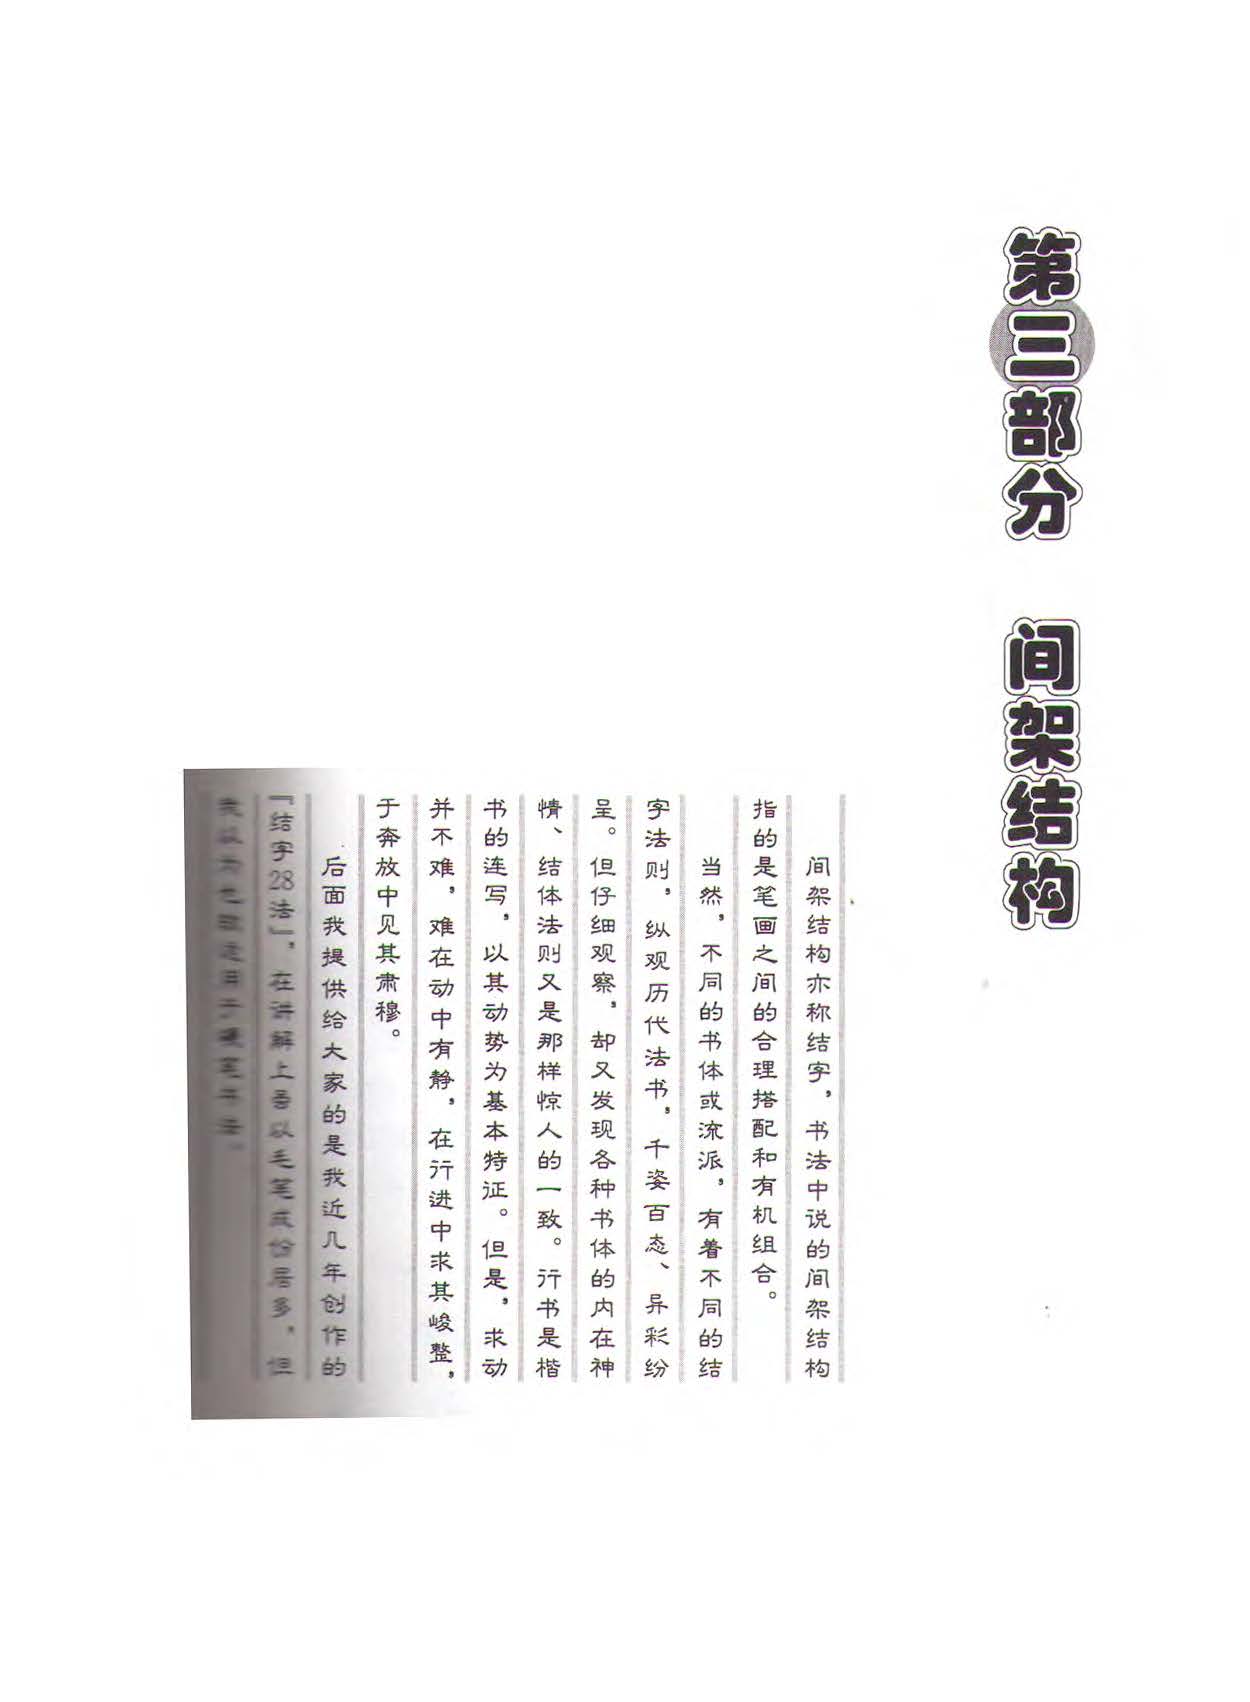 第三部分 间架结构
间架结构亦称结字，书法中说的间架结构
指的是笔画之间的合理搭配和有机组合。
当然，不同的书体或流派，有着不同的结
字法则，纵观历代法书，千姿百态、异彩纷
呈。但仔细观察，却又发现各种书体的内在神
情、结体法则又是那样惊人的一致。行书是楷
书的连写，以其动势为基本特征。但是，求动
并不难，难在动中有静，在行进中求其峻整，
于奔放中见其肃穆。
后面我提供给大家的是我近几年创作的
『结字28法』，在讲解上吾以毛笔成份居多，但
我以为也敢适用于硬笔书法。